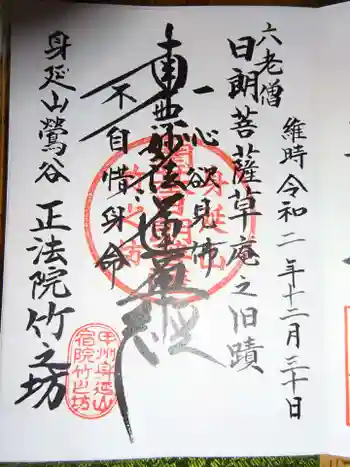 維時令和二年十二月三十日
六老僧
日朗菩薩草庵之旧蹟
一心欲見佛
南無妙法蓮華経
不自惜身命
身延山鶯谷
正法院竹之坊
甲州身延山
宿院竹之坊